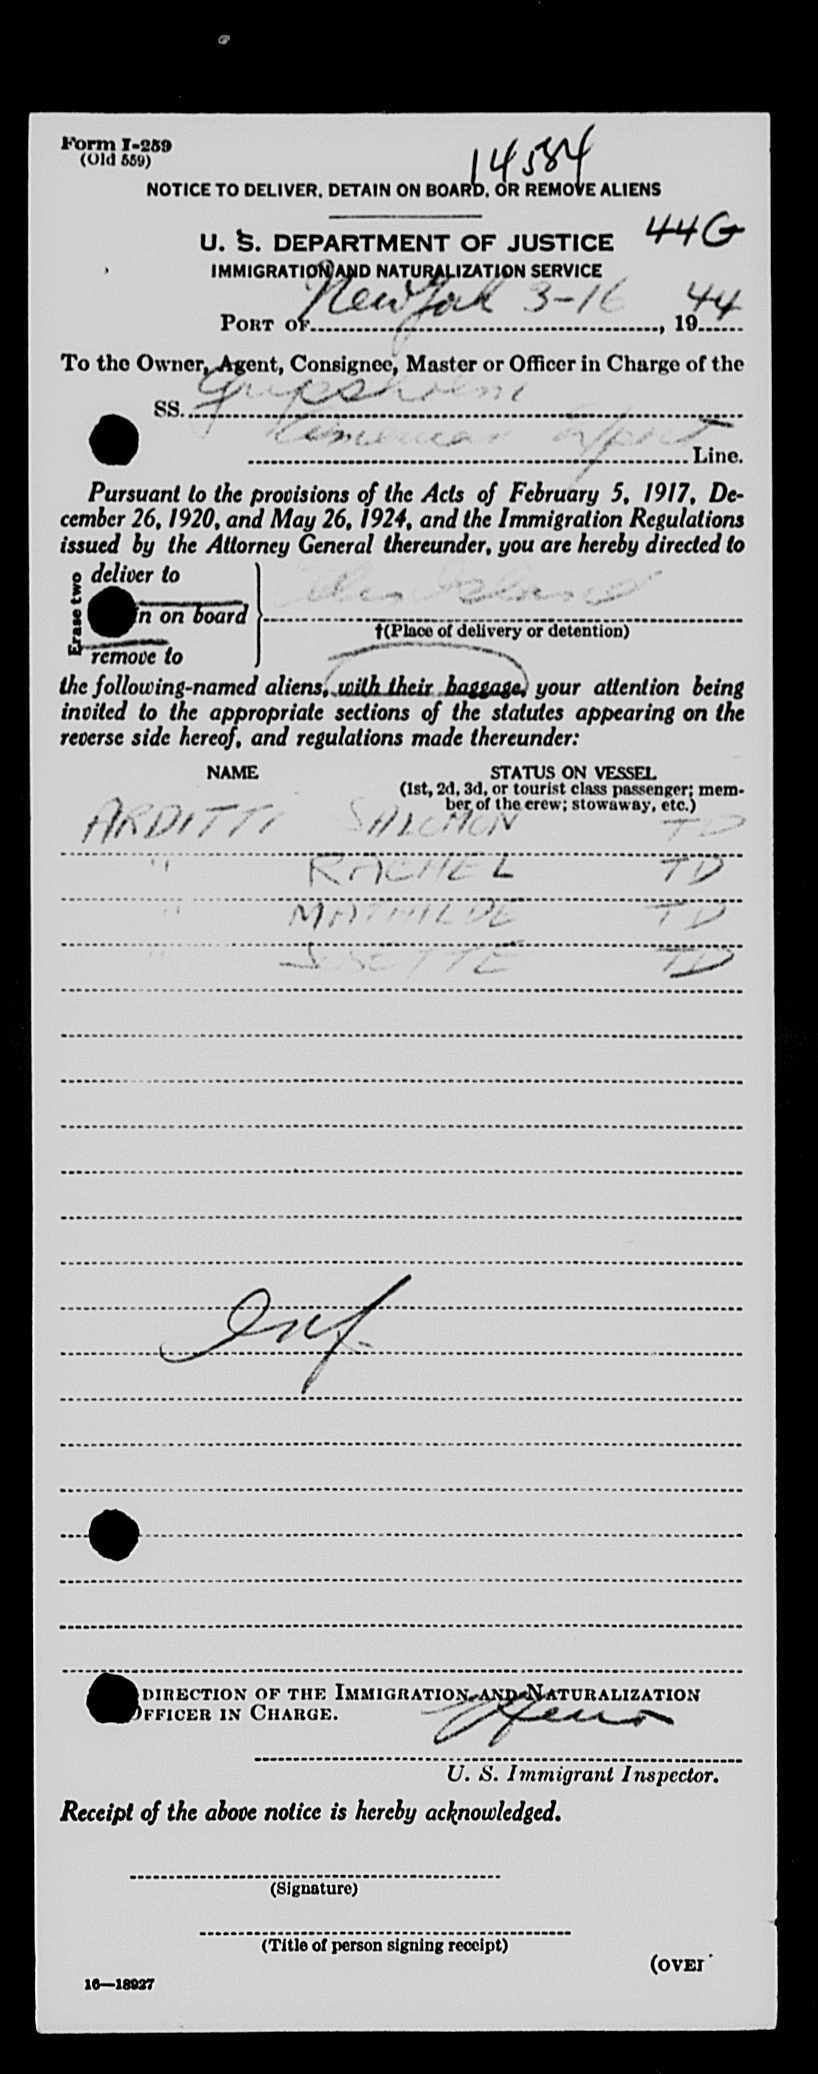 Form I-259
(Old 559)
14584
NOTICE TO DELIVER, DETAIN ON BOARD, OR REMOVE ALIENS
44G
U. S. DEPARTMENT OF JUSTICE
IMMIGRATION AND NATURALIZATION SERVICE
PORT OF New York 3-16, 1944
To the Owner, Agent, Consignee, Master or Officer in Charge of the
SS. Gripsholm
American Export Line.
Pursuant to the provisions of the Acts of February 5, 1917, De-
cember 26, 1920, and May 26, 1924, and the Immigration Regulations
issued by the Attorney General thereunder, you are hereby directed to
Erase two
deliver to
in on board
remove to
Ellis Island
†(Place of delivery or detention)
the following-named aliens, with their baggage, your attention being
invited to the appropriate sections of the statutes appearing on the
reverse side hereof, and regulations made thereunder:
NAME STATUS ON VESSEL
(1st, 2d, 3d, or tourist class passenger; mem-
ber of the crew; stowaway, etc.)
ARDITTI SALOMON TD
" RACHEL TD
" MATHILDE TD
" JOSETTE TD
DIRECTION OF THE IMMIGRATION AND NATURALIZATION
OFFICER IN CHARGE.
U. S. Immigrant Inspector.
Receipt of the above notice is hereby acknowledged.
(Signature)
(Title of person signing receipt)
(OVER
16—18927